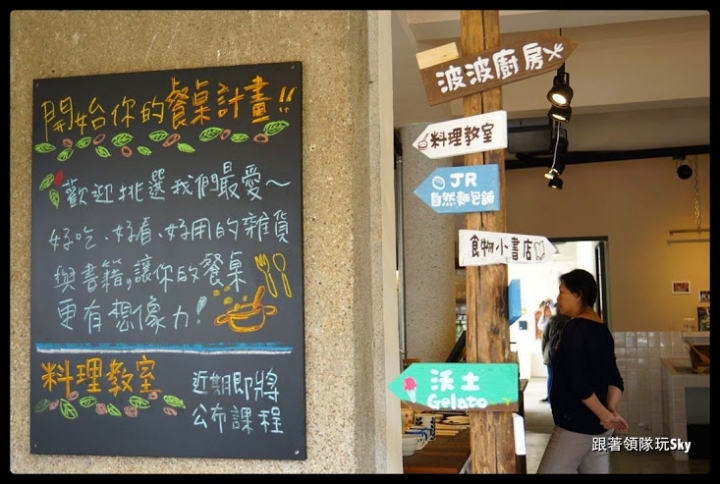 開始你的餐桌計畫!!
歡迎挑選我們最愛~
好吃、好看、好用的雜貨
與書籍,讓你的餐桌
更有想像力!
料理教室
近期即將
公布課程
波波廚房
料理教室
JR
自然麵包舖
食物小書店
沃土
Gelato
跟著領隊玩Sky